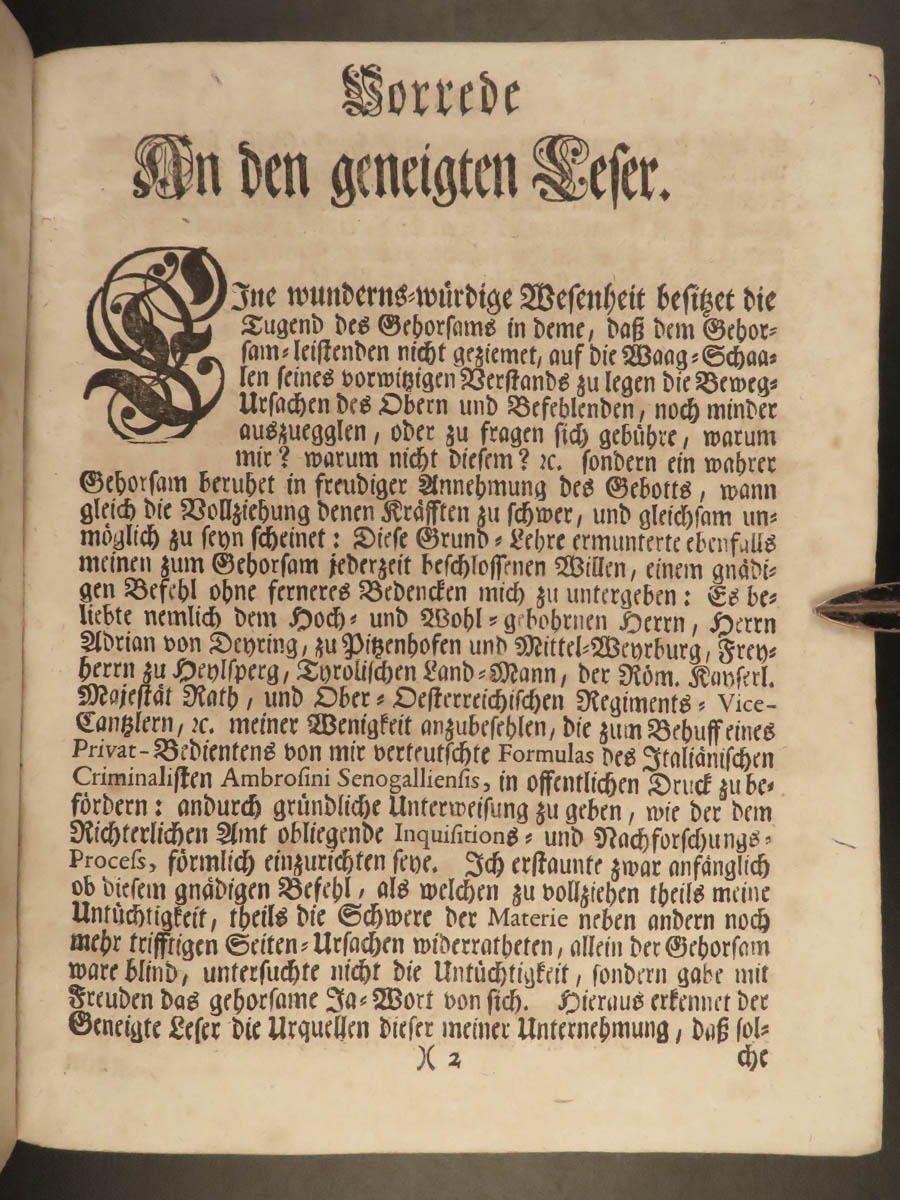 Vorrede
An den geneigten Leser.
EJne wunderns-würdige Wesenheit besitzet die
Tugend des Gehorsams in deme, daß dem Gehor-
sam-leistenden nicht geziemet, auf die Waag-Schaa-
len seines vorwitzigen Verstands zu legen die Beweg-
Ursachen des Obern und Befehlenden, noch minder
auszuegglen, oder zu fragen sich gebühre, warum
mir? warum nicht diesem? ꝛc. sondern ein wahrer
Gehorsam beruhet in freudiger Annehmung des Gebotts, wann
gleich die Vollziehung denen Kräfften zu schwer, und gleichsam un-
möglich zu seyn scheinet: Diese Grund-Lehre ermunterte ebenfalls
meinen zum Gehorsam jederzeit beschlossenen Willen, einem gnädi-
gen Befehl ohne ferneres Bedencken mich zu untergeben: Es be-
liebte nemlich dem Hoch- und Wohl-gebohrnen Herrn, Herrn
Adrian von Deyring, zu Pitzenhofen und Mittel-Weyrburg, Frey-
herrn zu Heylsperg, Tyrolischen Land-Mann, der Röm. Kayserl.
Majestät Rath, und Ober-Oesterreichischen Regiments-Vice-
Cantzlern, ꝛc. meiner Wenigkeit anzubefehlen, die zum Behuff eines
Privat-Bedientens von mir verteutschte Formulas des Italiänischen
Criminalisten Ambrosini Senogalliensis, in offentlichen Druck zu be-
fördern: andurch gründliche Unterweisung zu geben, wie der dem
Richterlichen Amt obliegende Inquisitions- und Nachforschungs-
Process, förmlich einzurichten seye. Jch erstaunte zwar anfänglich
ob diesem gnädigen Befehl, als welchen zu vollziehen theils meine
Untüchtigkeit, theils die Schwere der Materie neben andern noch
mehr trifftigen Seiten-Ursachen widerratheten, allein der Gehorsam
ware blind, untersuchte nicht die Untüchtigkeit, sondern gabe mit
Freuden das gehorsame Ja-Wort von sich. Hieraus erkennet der
Geneigte Leser die Urquellen dieser meiner Unternehmung, daß sol-
)( 2 che